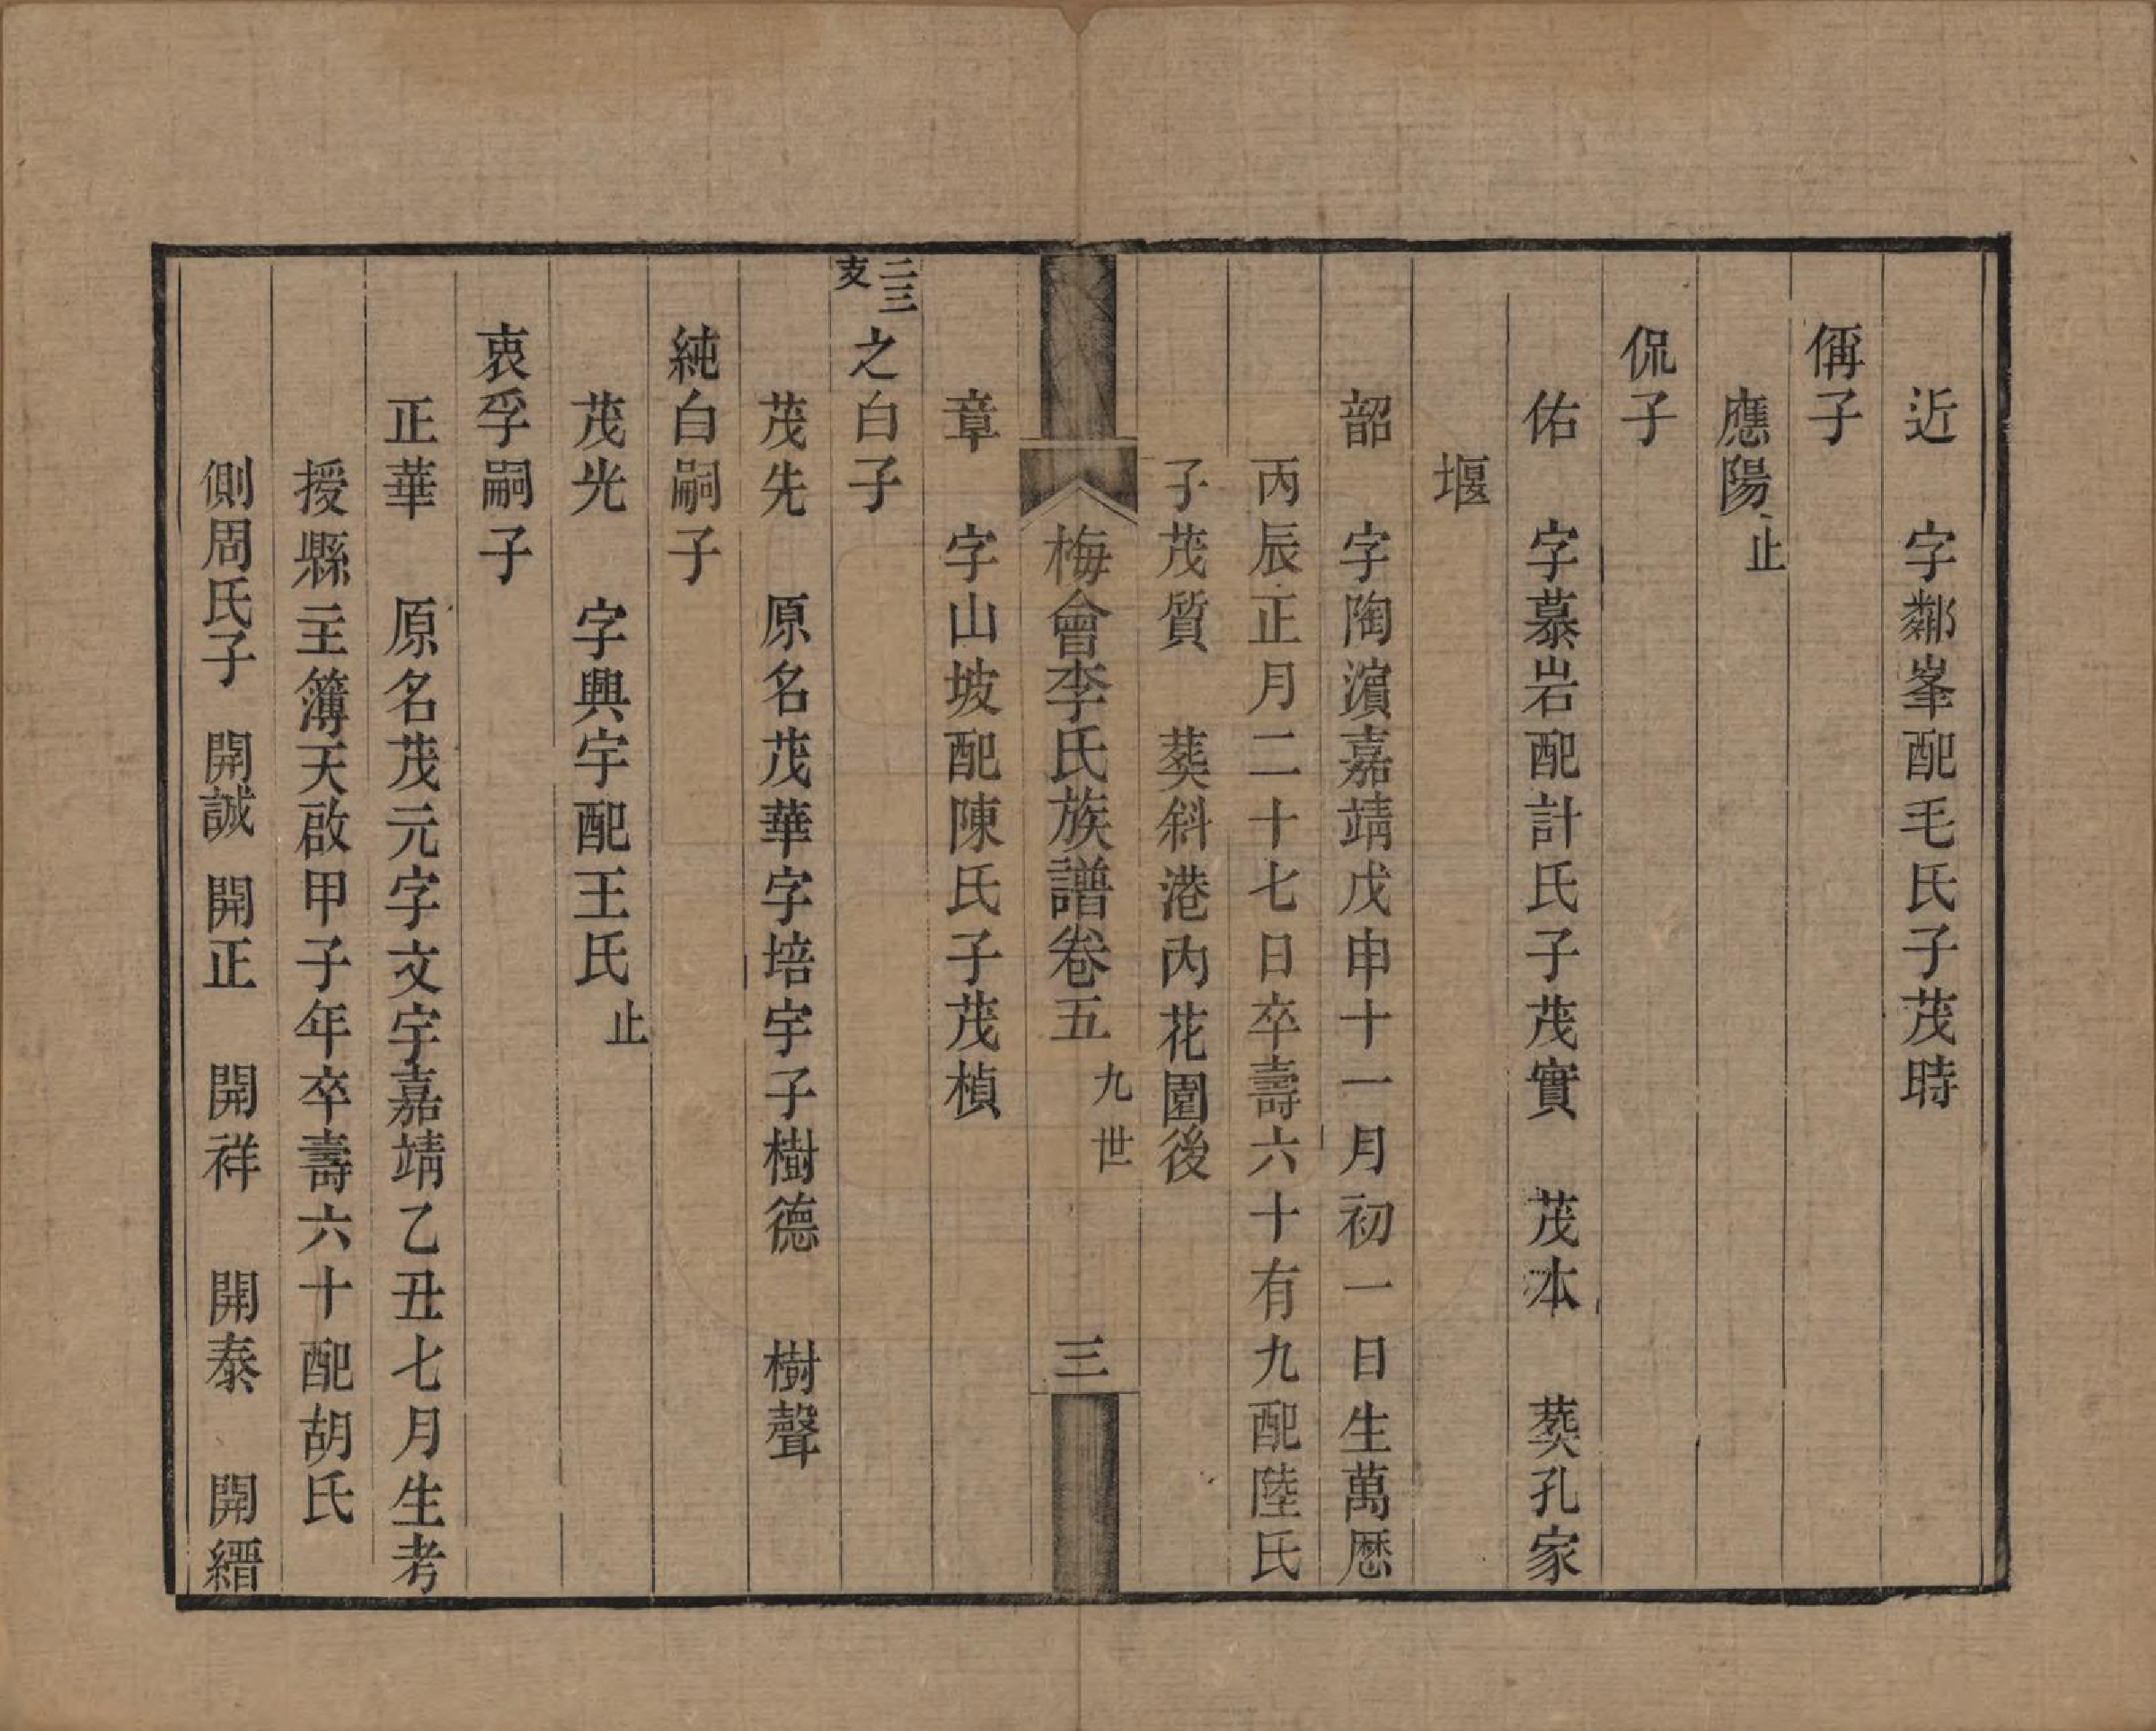 近　字鄰峯配毛氏子茂時
偁子
應陽止
侃子
佑　字慕岩配計氏子茂實　茂本　葬孔家
堰
韶　字陶濵嘉靖戊申十一月初一日生萬厯
丙辰正月二十七日卒壽六十有九配陸氏
子茂質　葬斜港內花園後
章　字山坡配陳氏子茂楨
梅會李氏族譜卷五　九世　三
二三支之白子
茂先　原名茂華字培宇子樹德　樹聲
純白嗣子
茂光　字興宇配王氏止
衷孚嗣子
正華　原名茂元字文宇嘉靖乙丑七月生考
授縣主簿天啟甲子年卒壽六十配胡氏
側周氏子　開誠　開正　開祥　開泰　開縉